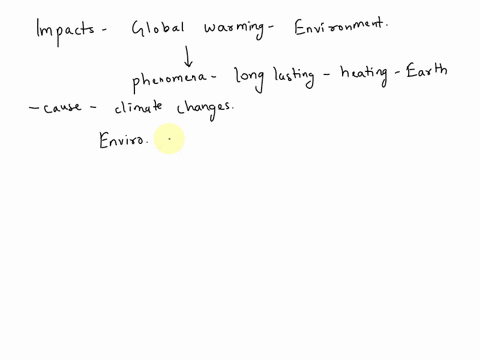 Impacts - Global warming - Environment.
phenomena - long lasting - heating - Earth
- cause - climate changes.
Enviro.